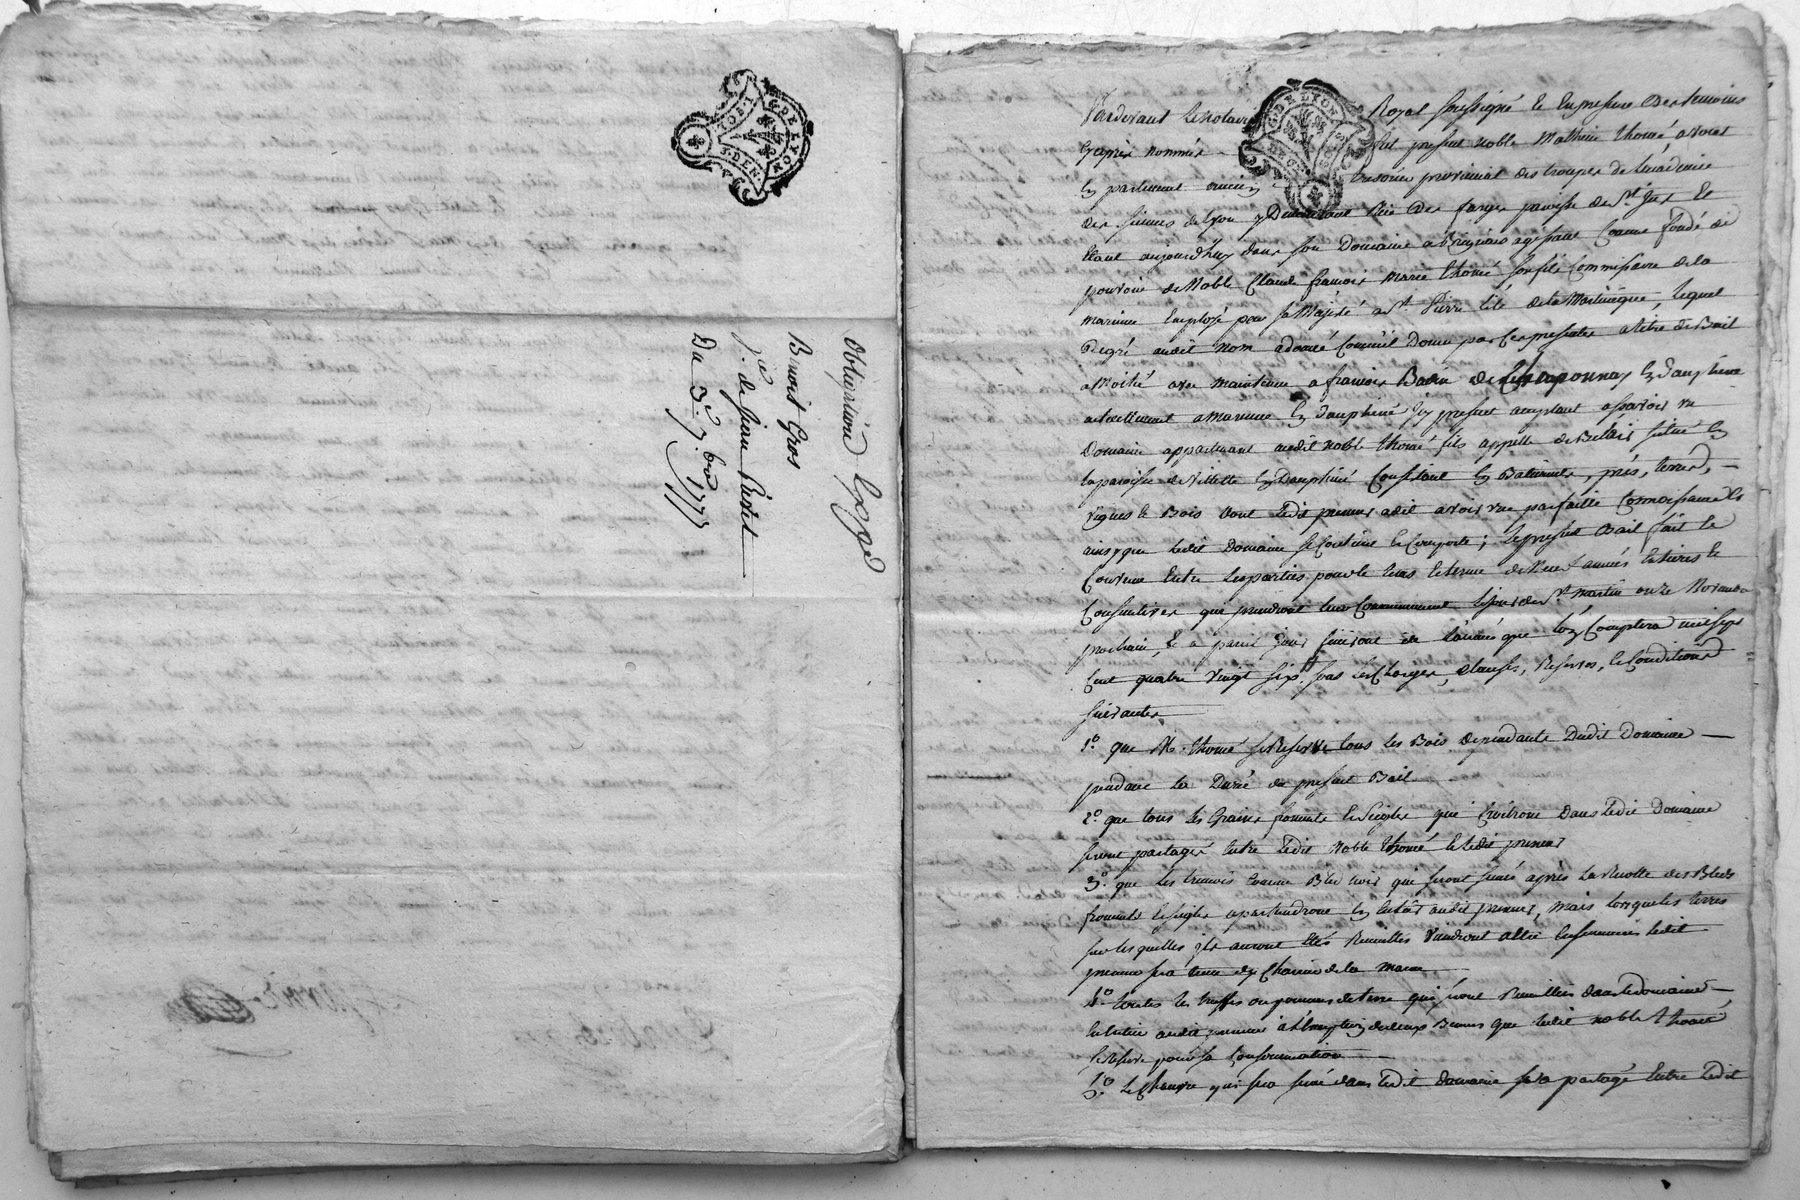 G. DE LYON
3. DEN.
Obligation
Benoist Gros
Du 3e 7bre 1777
G. DE LYON
Pardevant le Notaire Royal soussigné et en presence des temoins
cy après nommés fut present noble Mathieu thomé, avocat
en parlement ancien tresorier provincial des troupes de
des sciences de Lyon y Demeurant Rüe des farges paroisse de St. Just Et
etant aujourdhuy dans son Domaine a Brignais agissant Comme fondé de
pouvoir de Noble Claude francois marie thomé son fils Commissaire de la
marine Employé pour sa Majesté a St. Pierre isle de la Martinique, lequel
De gré audit nom a donné Comme il donne par Ces presentes a titre de Bail
a Moitié avec maintenue a francois Badin de Chaponnay En Dauphiné
actuellement a marennes En Dauphiné icy present acceptant assavoir un
Domaine appartenant audit noble thomé fils appellé de situé En
la paroisse de Villette En Dauphiné Consistant En Batiments, prés, terres,
vignes et Bois dont Ledit preneur a dit avoir une parfaitte Connoissance Et
ainsy que ledit Domaine se Contient et Comporte; le present Bail fait et
Convenu Entre les parties pour le tems et terme de Neuf années Entieres Et
Consecutives qui prendront leur Commencement le jour de St. Martin onze Novembre
prochain, & a pareil jour finiront en l'année que l'on Comptera mil sept
Cent quatre vingt six, sous les Charges, Clauses, Reserves, et Conditions
suivantes
1o. que M. thomé se Reserve tous les Bois dependants Dudit Domaine
pendant la Durée du present Bail
2o. que tous les Grains froments et Seigles qui Croitront Dans ledit Domaine
seront partagés Entre Ledit Noble thomé et ledit preneur
3o. que les tremois Comme Bled noir qui seront semés après La Recolte des Bleds
froments et seigles apartiendront En Entier audit preneur, mais lorsque les terres
sur lesquelles ils auront Etés Recueillies Ledit
preneur sera tenu de
4o. toutes les truffes ou pommes de terre qui seront Recueillies dans le domaine
audit preneur a l'Exception de deux Bennes que ledit noble thomé
se Reserve pour sa Consommation
5o. Le Chanvre qui sera semé dans ledit domaine sera partagé Entre Ledit